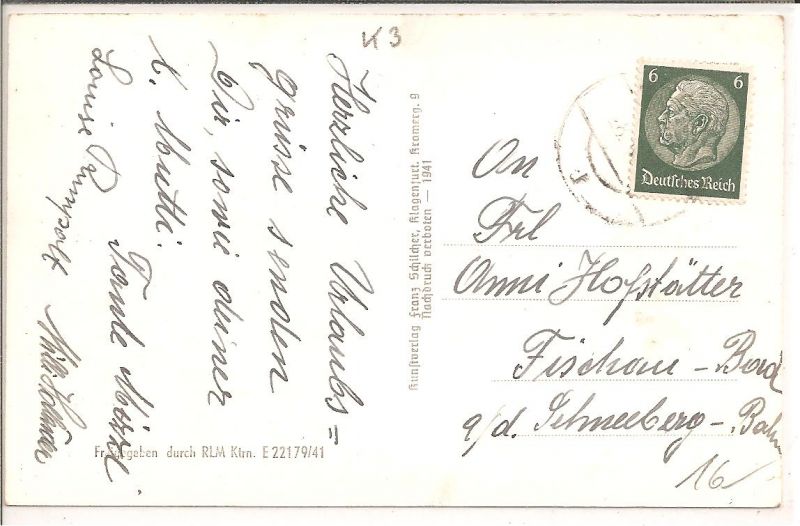 K3
Herzliche Urlaubs=
grüsse senden
Dir, sowie deiner
l. Mutti.
Tante
Louise
Willi
Kunstverlag Franz Schilcher, Klagenfurt. Kramerg. 9
Nachdruck verboten — 1941
6 6
Deutsches Reich
An
Frl
Anni Hofstätter
Fischau - Bad
a/d. Schneeberg-Bahn
16
Freigegeben durch RLM Ktrn. E 22179/41